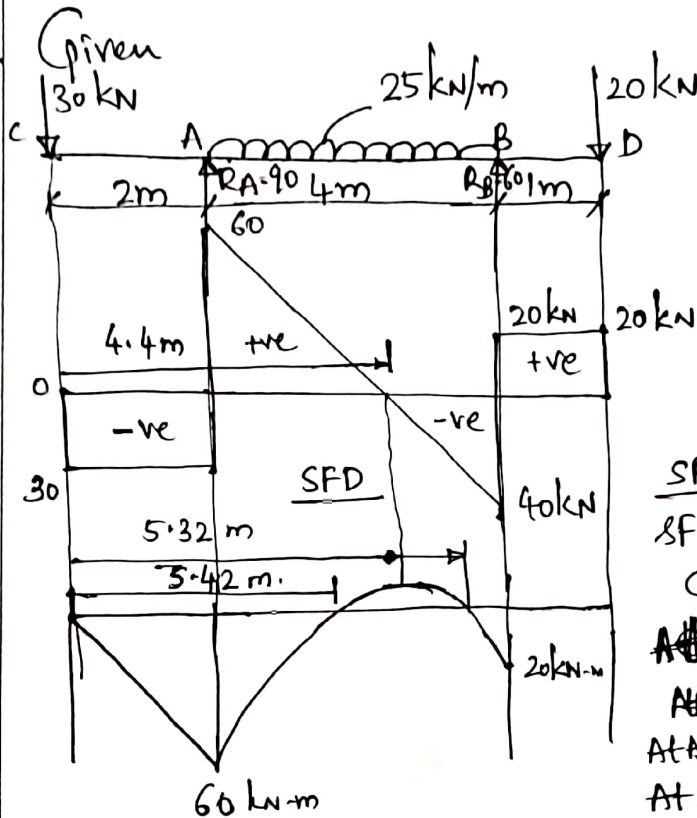 Given
30 kN
25 kN/m
20 kN
C
A
B
D
RA=90
4m
RB=60
1m
2m
60
20 kN
20 kN
4.4m
+ve
+ve
0
-ve
-ve
30
SFD
40kN
5.32 m
5.42 m.
20kN-m
60 kN-m
SF
At A
At